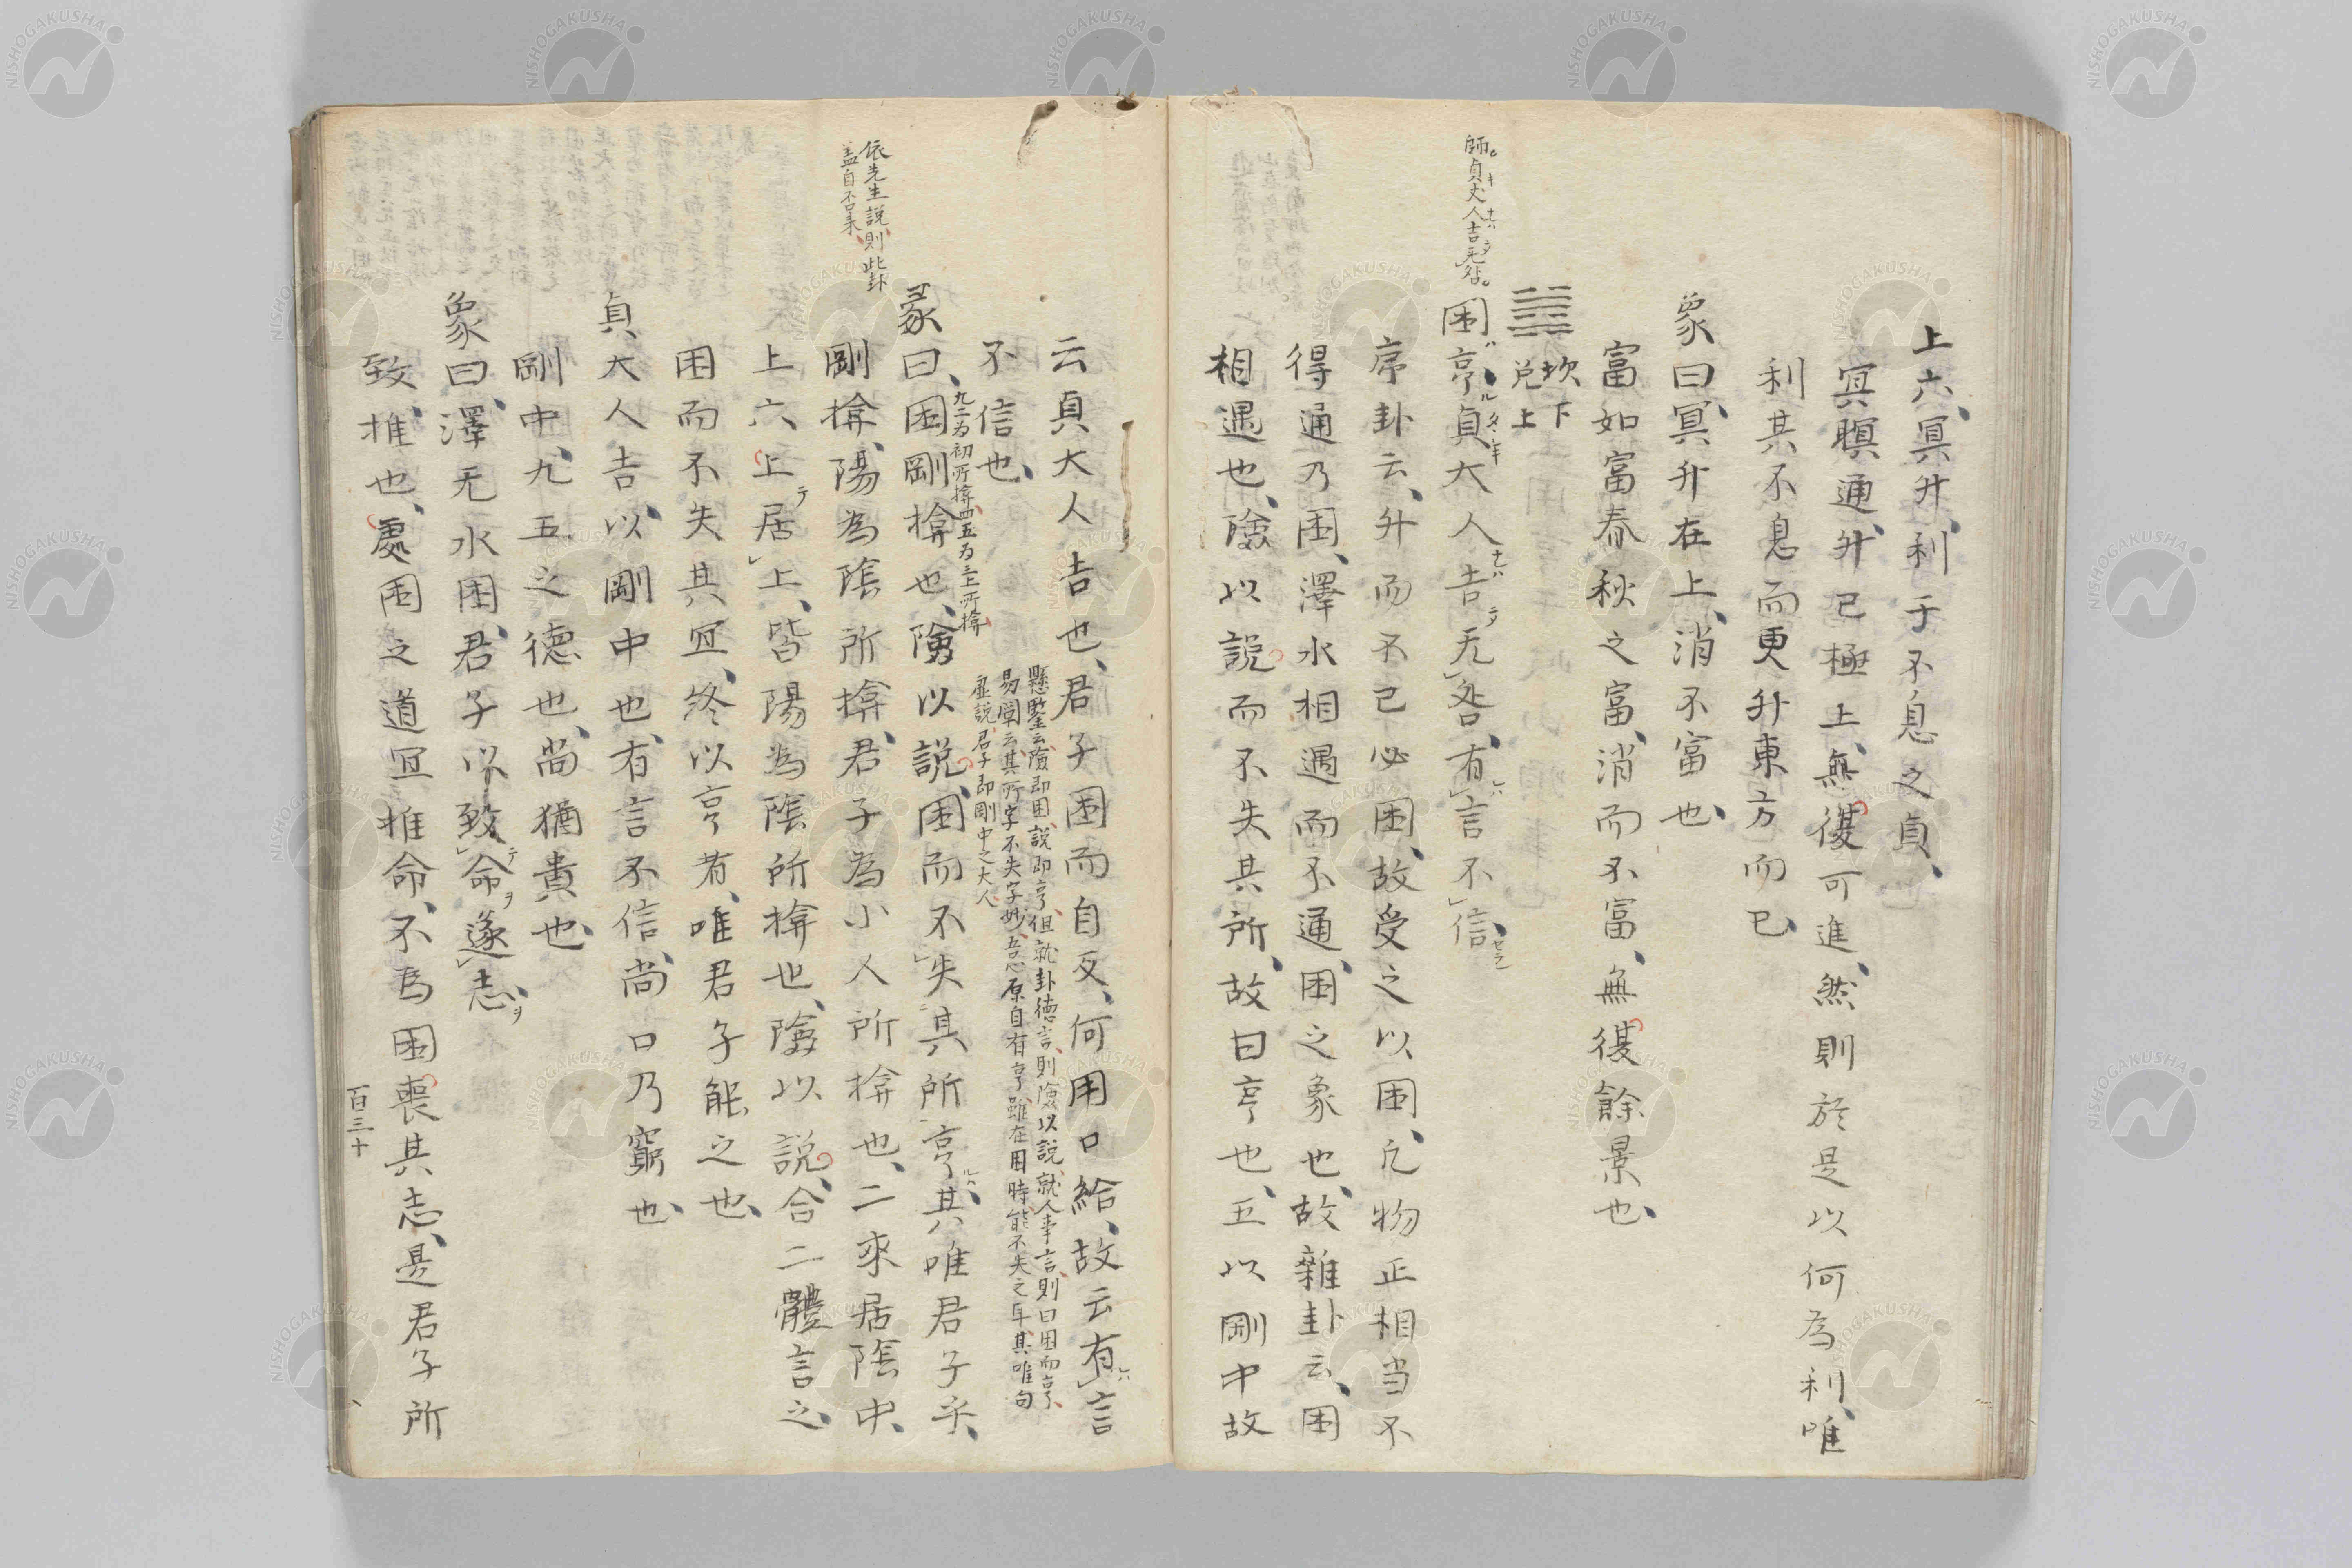 上六、冥升、利于不息之貞、
冥瞑通、升已極上、無復可進、然則於是以何為利、唯
利其不息而更升東方而已、
象曰、冥升在上、消不富也、
富如富春秋之富、消而不富、無復餘景也、
坎下
兌上
師貞丈人吉无咎。
困亨、貞大人吉无咎、有言不信、
序卦云、升而不已必困、故受之以困、凡物正相当不
得通乃困、澤水相遇而不通、困之象也、故雜卦云、困
相遇也、險以說而不失其所、故曰亨也、五以剛中故
云貞大人吉也、君子困而自反、何用口給、故云有言
不信也、
懸鑒云、險即困、說即亨、但就卦德言、則險以說、就人事言、則曰困而亨、
易闡云、其所字不失字妙、吾心原自有亨、雖在困時、能不失之耳、其唯句
虛說、君子即剛中之大人
彖曰、困剛揜也、險以說、困而不失其所亨、其唯君子乎、
九二為初所揜、四五為三上所揜、
剛揜、陽為陰所揜、君子為小人所揜也、二來居陰中、
依先生說則此卦
蓋自否来
上六上居上、皆陽為陰所揜也、險以說、合二體言之、
困而不失其宜、終以亨者、唯君子能之也、
貞大人吉、以剛中也、有言不信、尚口乃窮也、
剛中、九五之德也、尚猶貴也、
象曰、澤无水困、君子以致命遂志、
致、推也、處困之道宜推命、不為困喪其志、是君子所
百三十